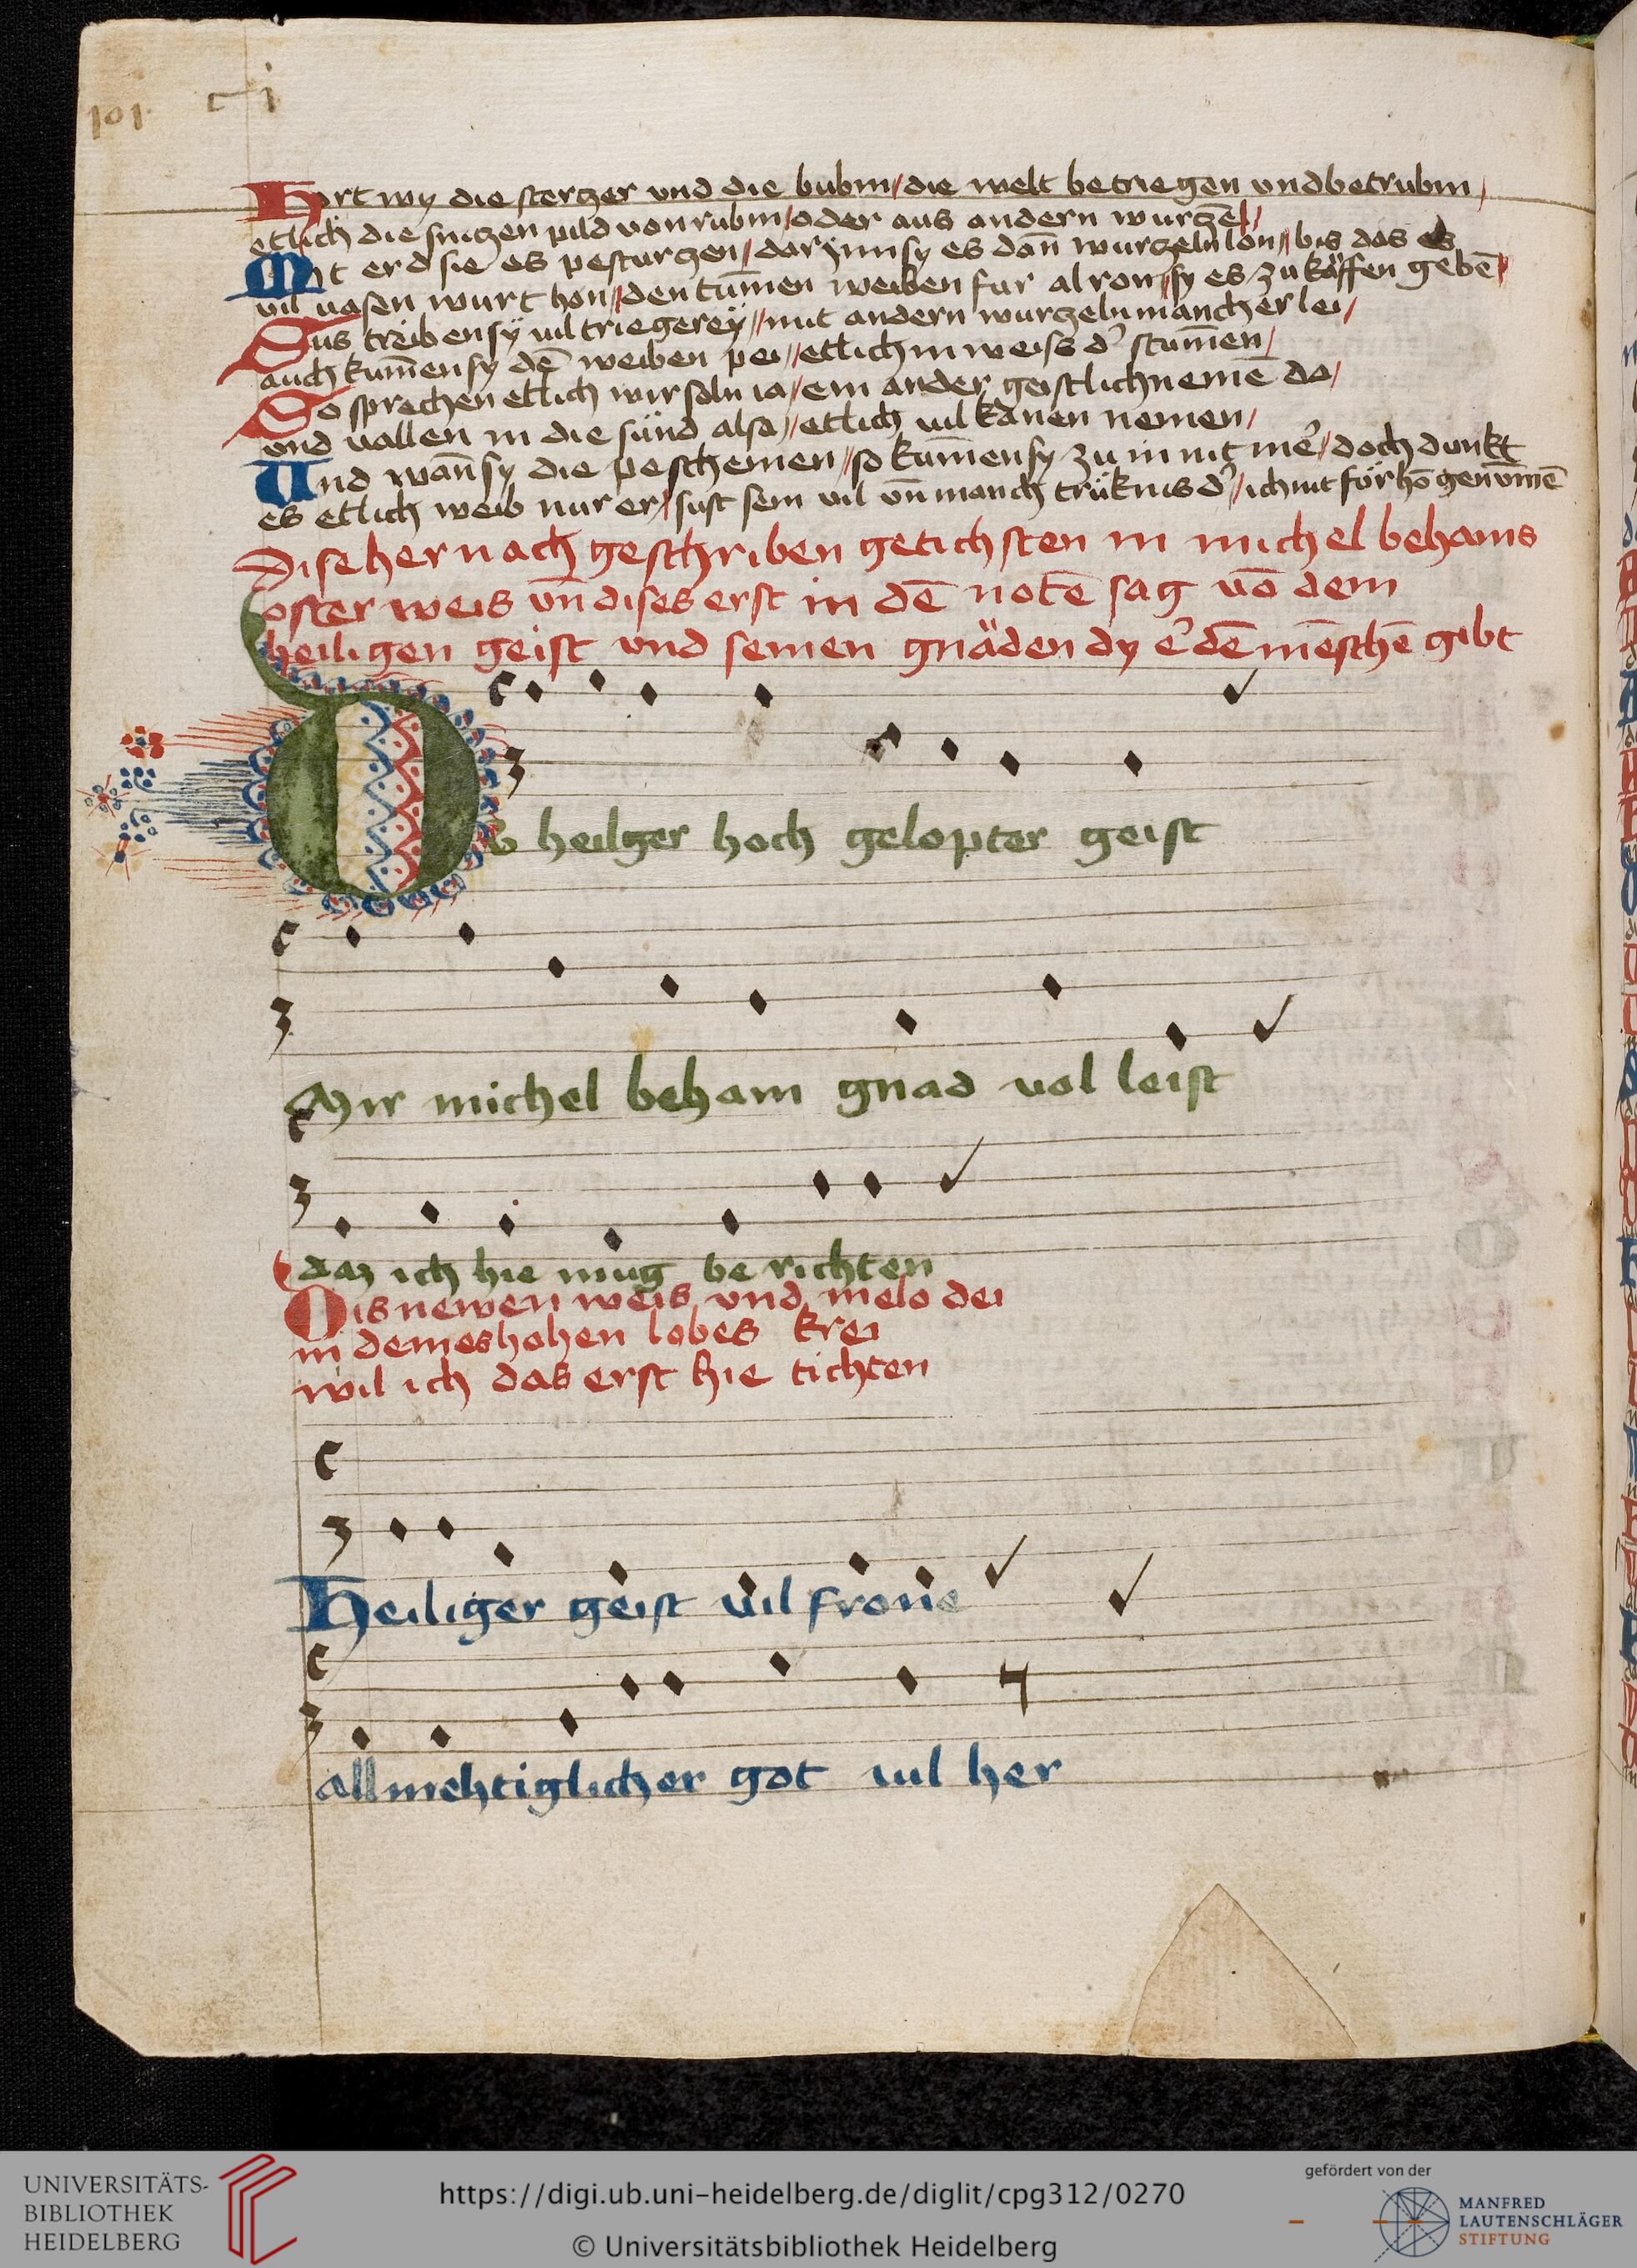 101 ci
Hort wy die sterczer und die bubm/die welt betriegen und betrubm/
etlich die sniczen pild von rubm/oder aus andern wurczel//
Mit erd sie es pesturczen/dar ynn sy es dan̄ wurczeln lon//bis das es
vil vasen wurt hon//den tum̄en weiben fur alron//sy es zu käffen gebē//
Sus treiben sÿ vil triegereÿ//mit andern wurczeln mancher lei/
auch kum̄en sy dē weiben pei//etlich in weiss d' stum̄en/
So sprechen etlich wir soln ia/ein ander geistlich nemē da/
und vallen in die sünd alsa//etlich vil kanen nemen/
Und wan̄ sy die peschemen//so kum̄en sy zu in nit me'/doch dunkt
es etlich weib nur er/sust sein vil un̄ manch trüknis d'/ich nit för hō genūmē
Dise her nach geschriben geticht sten in michel behams
oster weis un̄ dises erst in dē notē sag vō dem
heiligen geist und seinen gnäden dy e' dē mēschē gibt
Du heilger hoch gelopter geist
Mir michel beham gnad vol leist
daz ich hie mug be richten
Dis newen weis und melo dei
in demes hohen lobes krei
wil ich das erst hie tichten
Heiliger geist vil frone
allmehtiglicher got vil her
UNIVERSITÄTS-
BIBLIOTHEK
HEIDELBERG
https://digi.ub.uni-heidelberg.de/diglit/cpg312/0270
© Universitätsbibliothek Heidelberg
gefördert von der
MANFRED
LAUTENSCHLÄGER
STIFTUNG